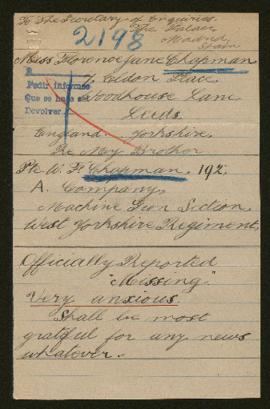 To The Secretary of Enquiries.
The Palace
Madrid
Spain
2198
Miss Florence Jane Chapman
7, Eldon Place
Woodhouse Lane
Leeds
England. Yorkshire.
Pedir informes
Que se haga
Devolver
Re My Brother
Pte W. F. Chapman, 192,
A. Company,
Machine Gun Section
West Yorkshire Regiment,
Officially Reported
"Missing"
Very anxious.
Shall be most
grateful for any news
whatever.